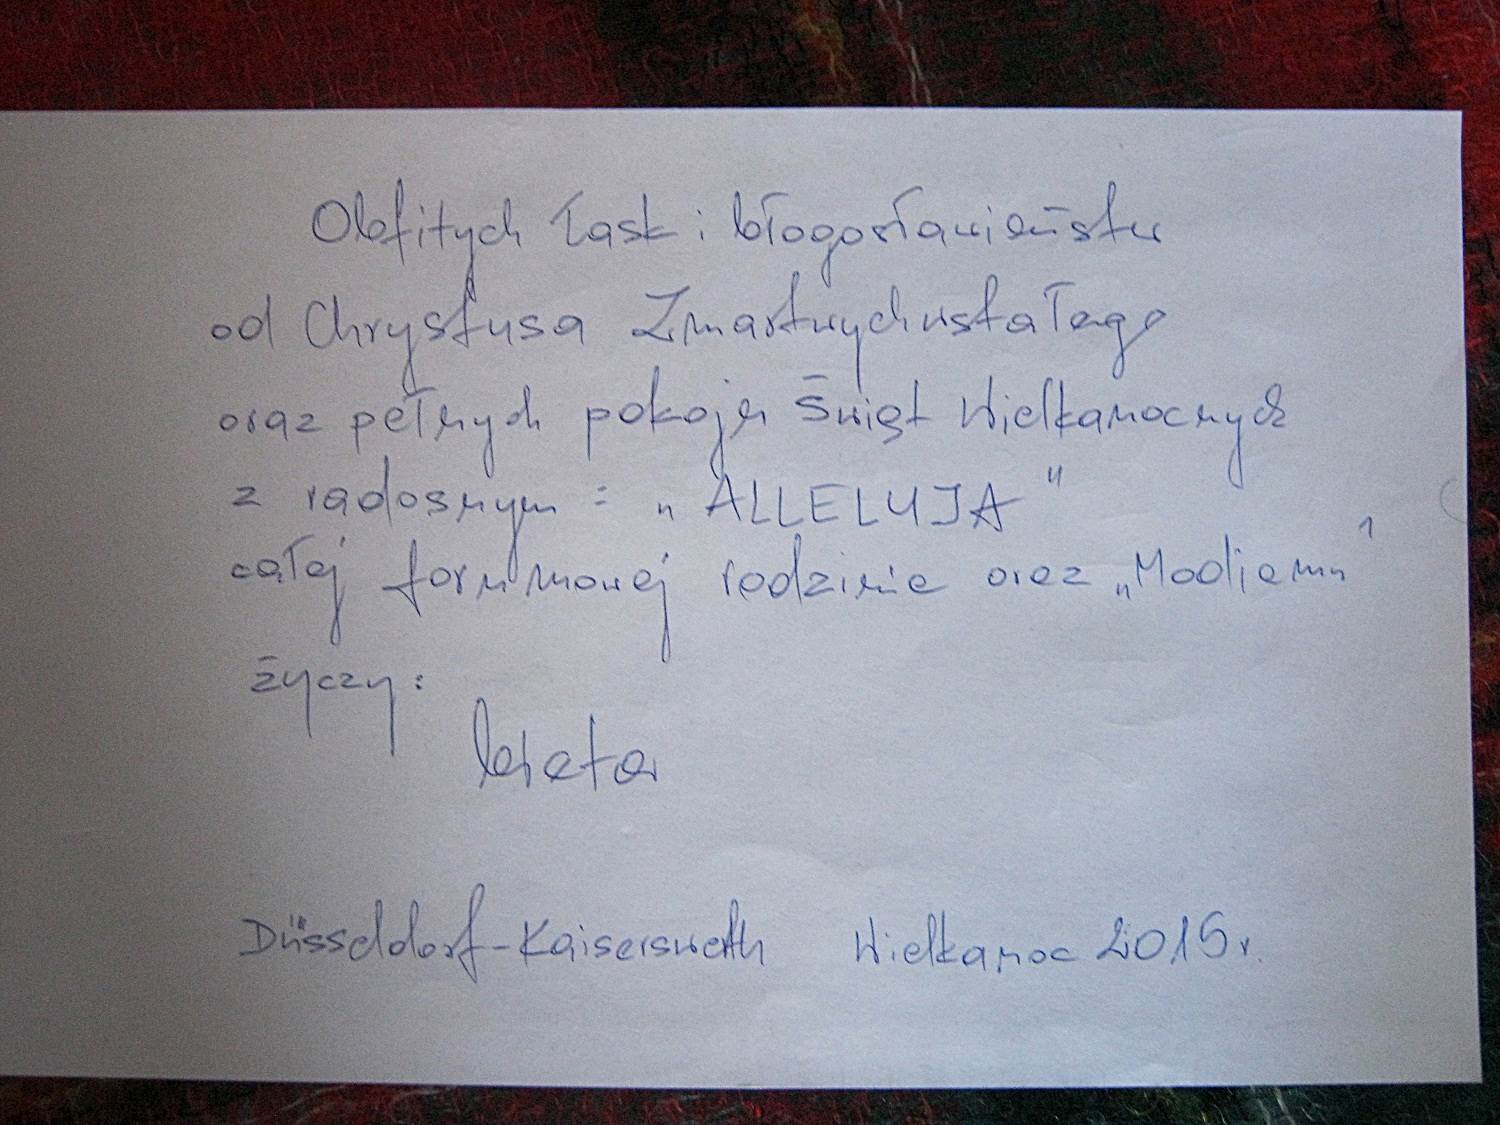 Obfitych łask i błogosławieństw
od Chrystusa Zmartwychwstałego
oraz pełnych pokoju Świąt Wielkanocnych
z radosnym : „ALLELUJA"
całej forumowej rodzinie oraz „Modliemu"
życzy:
bieta
Düsseldorf-Kaiserswerth Wielkanoc 2015 r.